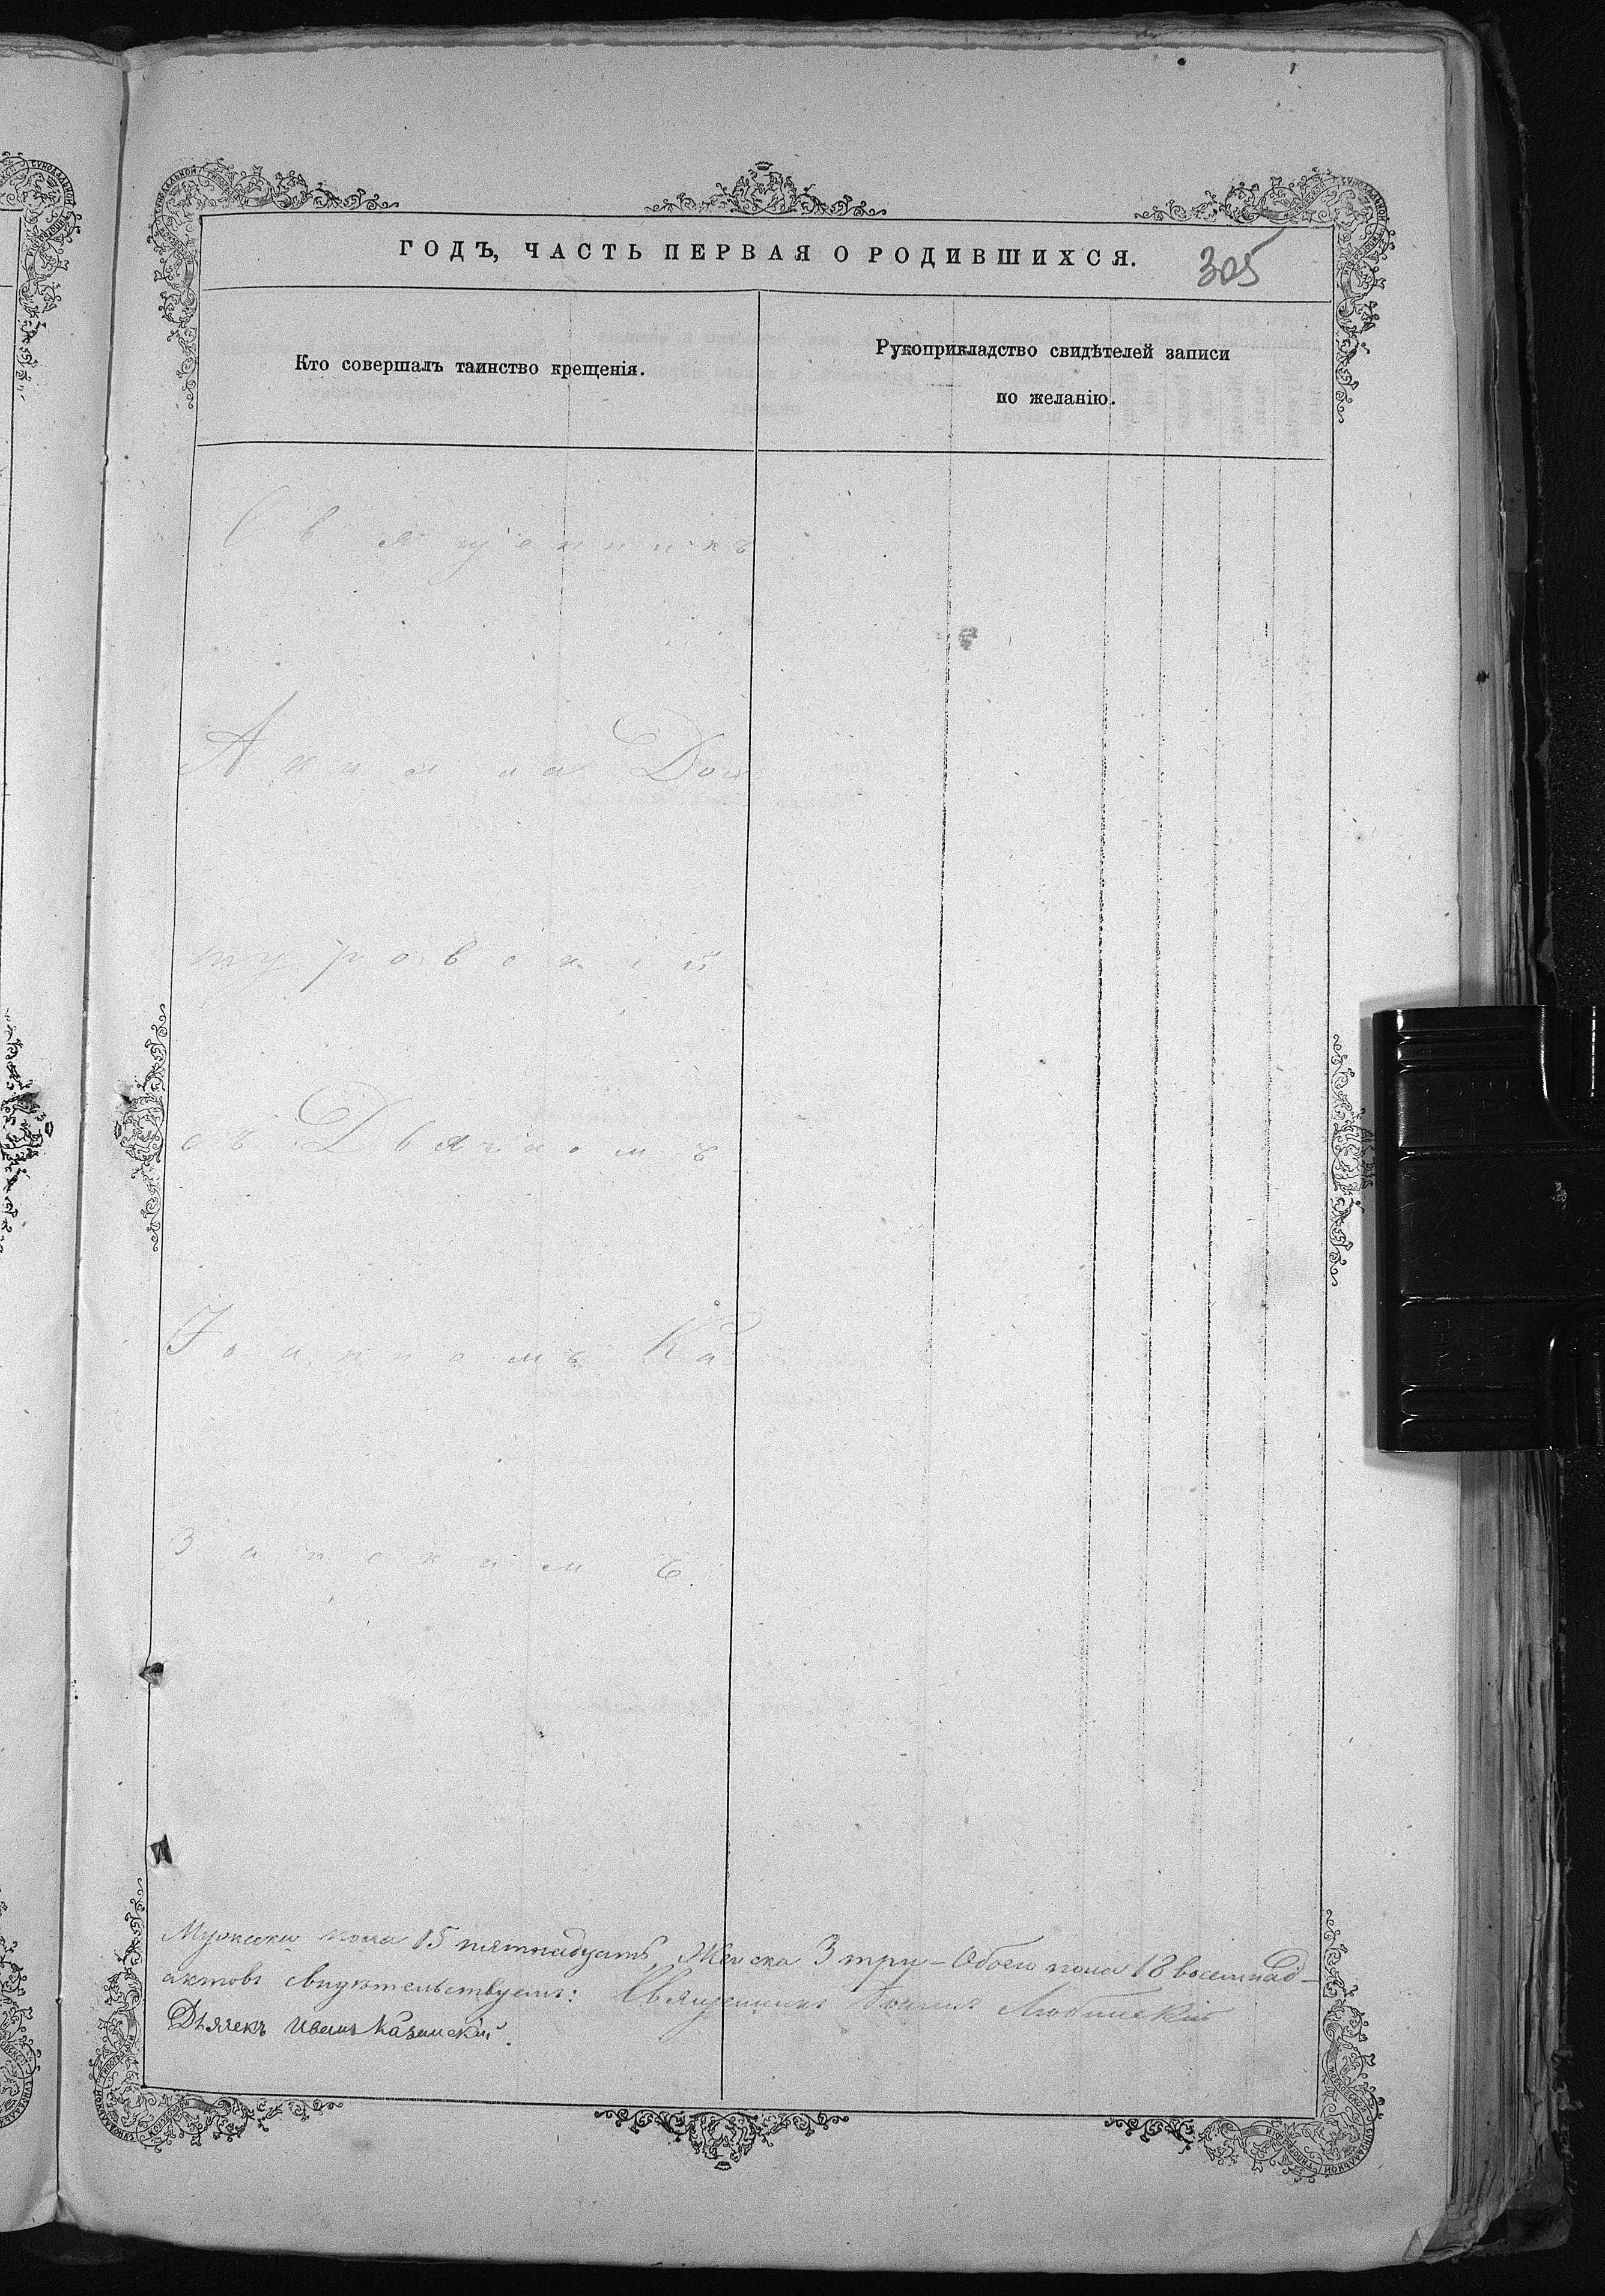 ГОДЪ, ЧАСТЬ ПЕРВАЯ О РОДИВШИХСЯ.
305
Кто совершалъ таинство крещенія.
Рукоприкладство свидѣтелей записи
по желанію.
Священникъ
Акила Дош
туровскій
съ Дьячкомъ
Іоанномъ Ка
занскимъ.
Мужска пола 15 пятнадцать, Женска 3 три – Обоего пола 18 восемнад–
актовъ свидѣтельствуемъ: Священникъ Любинскій
Дьячекъ Иванъ Казанскій.